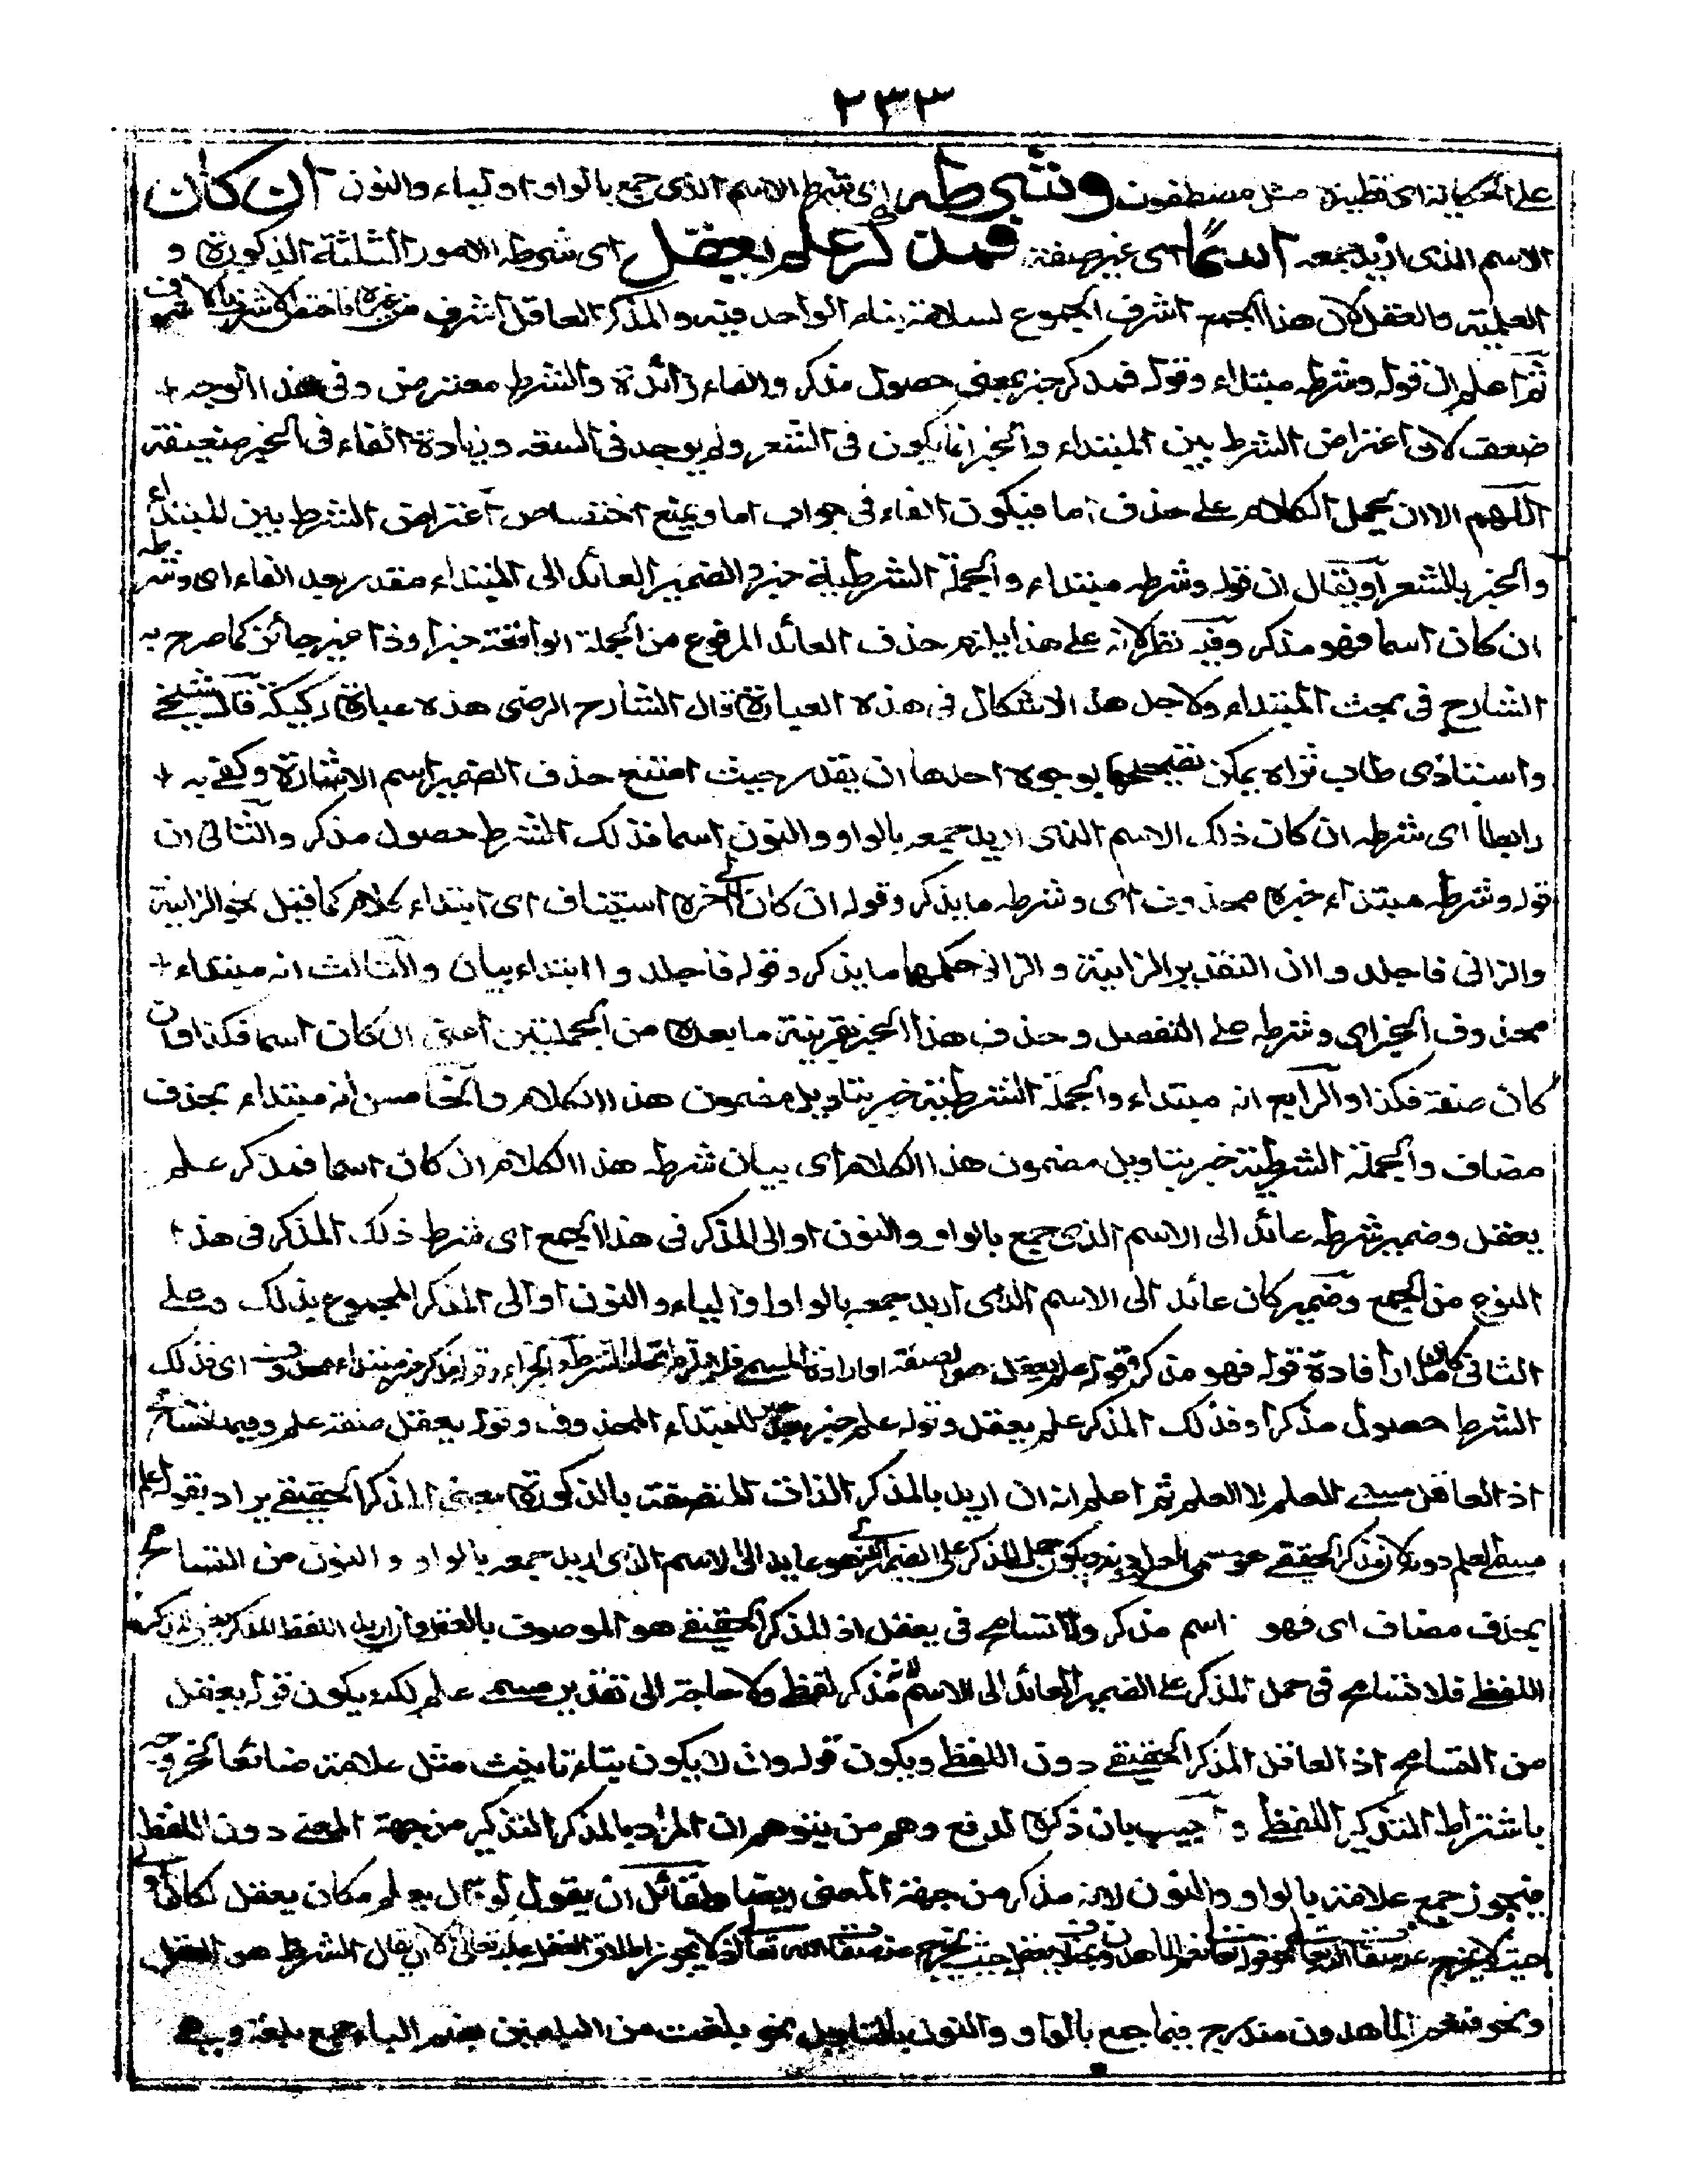 ٢٣٣
على الحكاية اى قطينة مثل مصطفون وشرطه اى شرط الاسم الذى جمع بالواو او لياء والنون ان كان
الاسم الذى اريد جمعه اسمًا اى غير صفة فمذكر علم يعقل اى شرطه الامور الثلثة المذكورة و
العلمية والعقل لان هذا الجمع اشرف الجموع لسلامة بناء الواحد فيه والمذكر العاقل اشرف من غيره فاختص الاشرف بالاشرف
ثم اعلم ان قوله وشرطه مبتداء وقوله فمذكر خبر بمعنى حصول مذكر والفاء زائدة والشرط معترض وفى هذا الوجه
ضعف لان اعتراض الشرط بين المبتداء والخبر انما يكون فى الشعر ولم يوجد فى السعة وزيادة الفاء فى الخبر ضعيفة
اللهم الا ان يحمل الكلام على حذف اما فيكون الفاء فى جواب اما ويمنع اختصاص اعتراض الشرط بين المبتداء
والخبر بالشعر او يقال ان قوله وشرطه مبتداء والجملة الشرطية خبره والضمير العائد الى المبتداء مقدر بعد الفاء اى وشرطه
ان كان اسما فهو مذكر وفيه نظر لانه على هذا يلزم حذف العائد المرفوع من الجملة الواقعة خبرا وذا غير جائز كما صرح به
الشارح فى بحث المبتداء ولاجل هذا الاشكال فى هذه العبارة قال الشارح الرضى هذه عبارة ركيكة قال شيخى
واستاذى طاب ثراه يمكن تصحيحها بوجوه احدها ان يقدر حيث امتنع حذف الضمير اسم الاشارة وكفى به
رابطا اى شرطه ان كان ذلك الاسم الذى اريد جمعه بالواو والنون اسما فذلك الشرط حصول مذكر والثانى ان
قوله وشرطه مبتداء خبره محذوف اى وشرطه ما يذكر وقوله ان كان الى اخره استيناف اى ابتداء كلام كما قيل نحو الزانية
والزانى فاجلدوا ان التقدير الزانية والزانى حكمهما ما يذكر وقوله فاجلدوا ابتداء بيان والثالث انه مبتداء
محذوف الخبر اى وشرطه على التفصيل وحذف هذا الخبر بقرينة ما بعده من الجملتين اعنى ان كان اسما فكذا وان
كان صفة فكذا والرابع انه مبتداء والجملة الشرطية خبر بتاويل مضمون هذا الكلام والخامس انه مبتداء بحذف
مضاف والجملة الشرطية خبر بتاويل مضمون هذا الكلام اى بيان شرطه هذا الكلام ان كان اسما فمذكر علم
يعقل وضمير شرطه عائد الى الاسم الذى جمع بالواو والنون او الى المذكر فى هذا الجمع اى شرط ذلك المذكر فى هذا
النوع من الجمع وضمير كان عائد الى الاسم الذى اريد جمعه بالواو والياء والنون او الى المذكر المجموع بذلك وعلى
الثانى كان افادة قوله فهو مذكر وقوله علم يعقل الصفة او ارادة المسمى اتحاد الشرط والجزاء وقوله فمذكر خبر مبتداء محذوف اى فذلك
الشرط حصول مذكر او فذلك المذكر علم يعقل وقوله علم خبر للمبتداء المحذوف وقوله يعقل صفة علم وفيه تسامح
اذ العاقل مسمى العلم لا العلم ثم اعلم انه ان اريد بالمذكر الذات المتصفة بالذكورة يعنى المذكر الحقيقى يراد بقوله علم
مسمى العلم دونه لان المذكر الحقيقى هو مسمى العلم ويكون حمل المذكر على الضمير الذى هو عايد الى الاسم الذى اريد جمعه بالواو والنون من التسامح
بحذف مضاف اى فهو اسم مذكر ولا تسامح فى يعقل اذ المذكر الحقيقى هو الموصوف بالعقل وان اريد اللفظ المذكر
اللفظى فلا تسامح فى حمل المذكر على الضمير العائد الى الاسم مذكر لفظى ولا حاجة الى تقدير مسمى علم لكنه يكون قوله يعقل
من التسامح اذ العاقل المذكر الحقيقى دون اللفظى ويكون قوله وان لا يكون بتاء تانيث مثل علامة ضائعا لخروجه
باشتراط التذكير اللفظى واجيب بان ذكره لدفع وهم من يتوهم ان المراد بالمذكر التذكير من جهة المعنى دون اللفظ
فيجوز جمع علامة بالواو والنون لانه مذكر من جهة المعنى ايضا ولقائل ان يقول لو قال يعلم مكان يعقل لكان اولى
حيث لا يخرج عنه صفات الله تعالى نحو قوله تعالى فنعم الماهدون بخلاف يعقل حيث يخرج عنه صفات الله تعالى اذ لا يجوز اطلاق العقل عليه تعالى لان يقال الشرط هو العقل
ونحو فنعم الماهدون مندرج فيما جمع بالواو والنون بالتاويل نحو بلغت من البلغين بضم الباء جمع بلغة